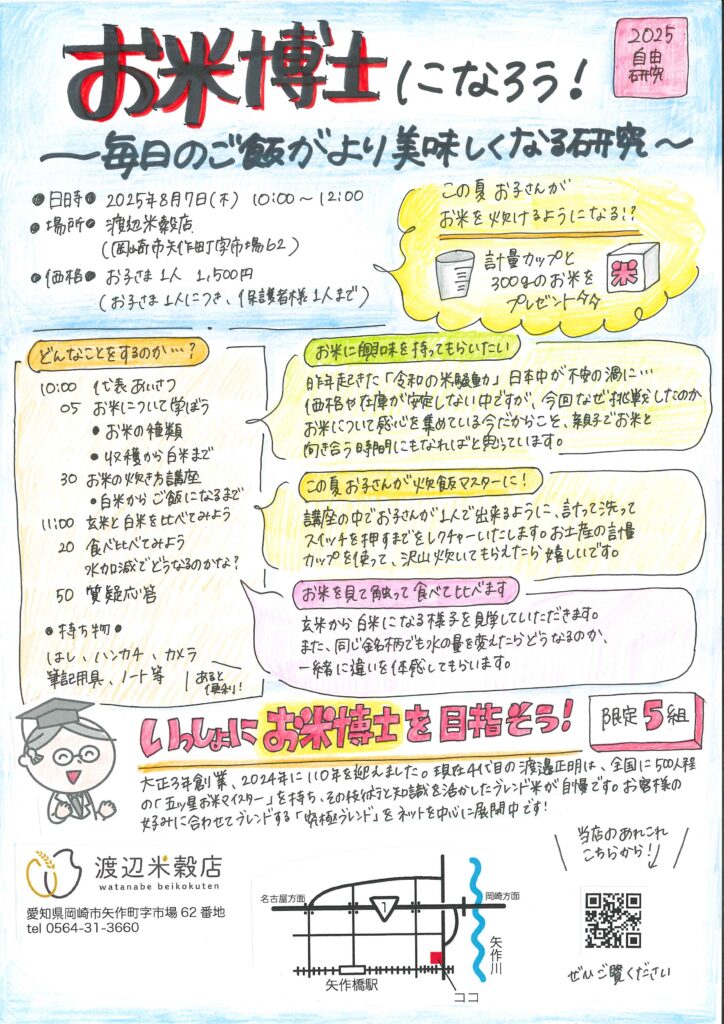 お米博士になろう!
2025
自由
研究
〜毎日のご飯がより美味しくなる研究〜
●日時● 2025年8月7日(木) 10:00〜12:00
●場所● 渡辺米穀店
(岡崎市矢作町字市場62)
●価格● お子さま1人 1,500円
(お子さま1人につき、保護者様1人まで)
この夏 お子さんが
お米を炊けるようになる!?
計量カップと
300gのお米を
プレゼント
米
どんなことをするのか…?
10:00 代表あいさつ
05 お米について学ぼう
●お米の種類
●収穫から白米まで
30 お米の炊き方講座
●白米からご飯になるまで
11:00 玄米と白米を比べてみよう
20 食べ比べてみよう
水加減でどうなるのかな?
50 質疑応答
●持ち物●
はし、ハンカチ、カメラ
筆記用具、ノート等
あると
便利!
お米に興味を持ってもらいたい
昨年起きた「令和の米騒動」日本中が不安の渦に…
価格や在庫が安定しない中ですが、今回なぜ挑戦したのか
お米について感心を集めている今だからこそ、親子でお米と
向き合う時間にもなればと思っています。
この夏 お子さんが炊飯マスターに!
講座の中でお子さんが1人で出来るように、計って洗って
スイッチを押すまでをレクチャーいたします。お土産の計量
カップを使って、沢山炊いてもらえたら嬉しいです。
お米を見て触って食べて比べます
玄米から白米になる様子を見学していただきます。
また、同じ銘柄でも水の量を変えたらどうなるのか、
一緒に違いを体感してもらいます。
いっしょにお米博士を目指そう!
限定5組
大正3年創業、2024年に110年を迎えました。現在4代目の渡邉正明は、全国に500人程
の「五ッ星お米マイスター」を持ち、その技術と知識を活かしたブレンド米が自慢です。お客様の
好みに合わせてブレンドする「究極ブレンド」をネットを中心に展開中です!
当店のあれこれ
こちらから!
渡辺米穀店
watanabe beikokuten
愛知県岡崎市矢作町字市場 62 番地
tel 0564-31-3660
名古屋方面
1
岡崎方面
矢作川
矢作橋駅
ココ
ぜひご覧ください